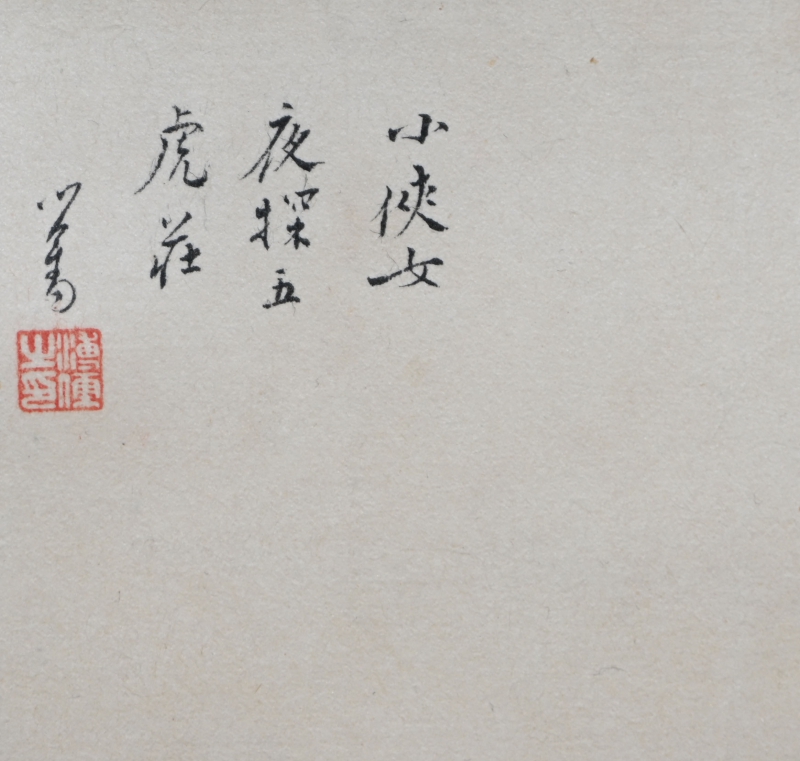 小俠女
夜探五
虎莊
心畬
溥儒之印